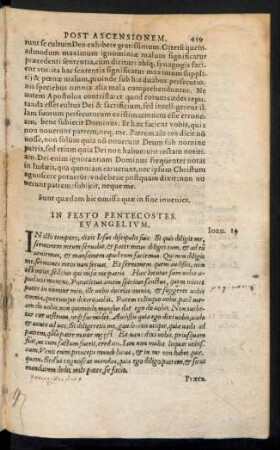 POST ASCENSIONEM. 419
runt se cultum Deo exhibere gratissimum. Cæterũ quem-
admodum maximum ignominiæ malum significatur
præcedenti sententia, cum dicitur: absq; synagogis faci-
ent vos: ita hac sententia significatur maximum supplic
ij & pœnæ malum, proinde sub his duabus persecutio-
nis speciebus omnia alia mala comprehenduntur. Ne
autem Apostolos contristaret
tanda esset cultus Dei & sacrificium, sed intelligerent il-
lam suorum persecutorem existimationem esse errone-
am, bene subiecit Dominus: Et hæc facient vobis, quia
non nouerunt patrem, neq; me. Patrem aũt dicit nõ
nosse, non quia nõ nouerunt Deum sub nomine
patris, sed etiam quia Dei non haberunt veram notitiam.
Dei enim ignorantiam Dominus frequenter notat
in Iudæis, quia quamuis
nouerunt patrem: subijcit, neque me.
Sunt quædam hic omissa quæ in fine inuenies.
IN FESTO PENTECOSTES.
EVANGELIVM.
Ioan. 14
IN illo tempore, dixit Iesus discipulis suis: Si quis diligit me,
sermonem meum seruabit, & pater meus diliget eum, & ad eũ
veniemus, & mansionem apud eum faciemus. Qui non diligit
me, sermones meos non seruat. Et sermonem quem audistis, non
est meus, sed eius qui misit me patris. Hæc locutus sum vobis a-
pud vos manens. Paracletus autem spiritus sanctus, quem mittet
pater in nomine meo, ille vobis docebit omnia, & suggeret vobis
omnia, quæcunque dixero vobis. Pacem relinquo vobis, pacẽ me-
am do vobis, non quomodo mundus dat, ego do vobis. Non turbe-
tur cor vestrum, neq; formidet. Audistis quia ego dixi vobis, vado
& venio ad vos. Si diligeretis me, gauderetis utique, quia vado ad
patrem, quia pater maior me est. Et nunc dixi vobis, priusquam
fiat, ut cum factum fuerit, credatis. Iam non multa loquar vobis-
cum. Venit enim princeps mundi huius, & in me non habet quic-
quam. Sed ut cognoscat mundus, quia ego diligo patrem, & sicut
mandatum dedit mihi pater, sic facio.